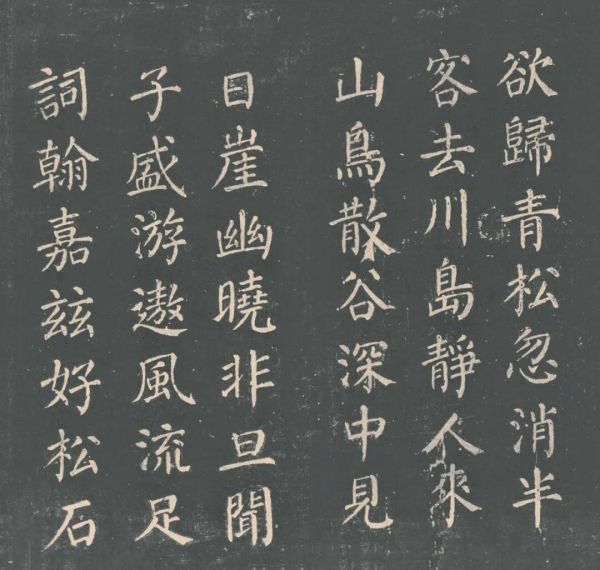 欲歸青松忽消半
客去川島靜人來
山鳥散谷深中見
日崖幽曉非旦聞
子盛游遨風流足
詞翰嘉茲好松石